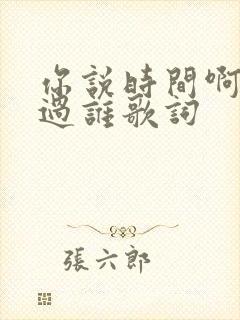 你說時間啊
過誰歌詞
張六郎